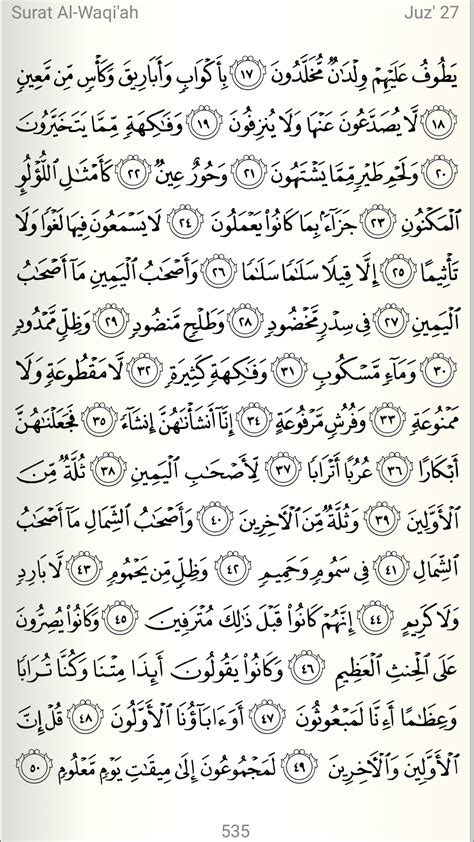 Surat Al-Waqi'ah Juz' 27
يَطُوفُ عَلَيْهِمْ وِلْدَٰنٌ مُّخَلَّدُونَ ١٧ بِأَكْوَابٍ وَأَبَارِيقَ وَكَأْسٍ مِّن مَّعِينٍ
١٨ لَّا يُصَدَّعُونَ عَنْهَا وَلَا يُنزِفُونَ ١٩ وَفَٰكِهَةٍ مِّمَّا يَتَخَيَّرُونَ
٢٠ وَلَحْمِ طَيْرٍ مِّمَّا يَشْتَهُونَ ٢١ وَحُورٌ عِينٌ ٢٢ كَأَمْثَٰلِ ٱللُّؤْلُؤِ
ٱلْمَكْنُونِ ٢٣ جَزَآءًۢ بِمَا كَانُوا۟ يَعْمَلُونَ ٢٤ لَا يَسْمَعُونَ فِيهَا لَغْوًا وَلَا
تَأْثِيمًا ٢٥ إِلَّا قِيلًا سَلَٰمًا سَلَٰمًا ٢٦ وَأَصْحَٰبُ ٱلْيَمِينِ مَآ أَصْحَٰبُ
ٱلْيَمِينِ ٢٧ فِى سِدْرٍ مَّخْضُودٍ ٢٨ وَطَلْحٍ مَّنضُودٍ ٢٩ وَظِلٍّ مَّمْدُودٍ
٣٠ وَمَآءٍ مَّسْكُوبٍ ٣١ وَفَٰكِهَةٍ كَثِيرَةٍ ٣٢ لَّا مَقْطُوعَةٍ وَلَا
مَمْنُوعَةٍ ٣٣ وَفُرُشٍ مَّرْفُوعَةٍ ٣٤ إِنَّآ أَنشَأْنَٰهُنَّ إِنشَآءً ٣٥ فَجَعَلْنَٰهُنَّ
أَبْكَارًا ٣٦ عُرُبًا أَتْرَابًا ٣٧ لِّأَصْحَٰبِ ٱلْيَمِينِ ٣٨ ثُلَّةٌ مِّنَ
ٱلْأَوَّلِينَ ٣٩ وَثُلَّةٌ مِّنَ ٱلْءَاخِرِينَ ٤٠ وَأَصْحَٰبُ ٱلشِّمَالِ مَآ أَصْحَٰبُ
ٱلشِّمَالِ ٤١ فِى سَمُومٍ وَحَمِيمٍ ٤٢ وَظِلٍّ مِّن يَحْمُومٍ ٤٣ لَّا بَارِدٍ
وَلَا كَرِيمٍ ٤٤ إِنَّهُمْ كَانُوا۟ قَبْلَ ذَٰلِكَ مُتْرَفِينَ ٤٥ وَكَانُوا۟ يُصِرُّونَ
عَلَى ٱلْحِنثِ ٱلْعَظِيمِ ٤٦ وَكَانُوا۟ يَقُولُونَ أَئِذَا مِتْنَا وَكُنَّا تُرَابًا
وَعِظَٰمًا أَءِنَّا لَمَبْعُوثُونَ ٤٧ أَوَءَابَآؤُنَا ٱلْأَوَّلُونَ ٤٨ قُلْ إِنَّ
ٱلْأَوَّلِينَ وَٱلْءَاخِرِينَ ٤٩ لَمَجْمُوعُونَ إِلَىٰ مِيقَٰتِ يَوْمٍ مَّعْلُومٍ ٥٠
535